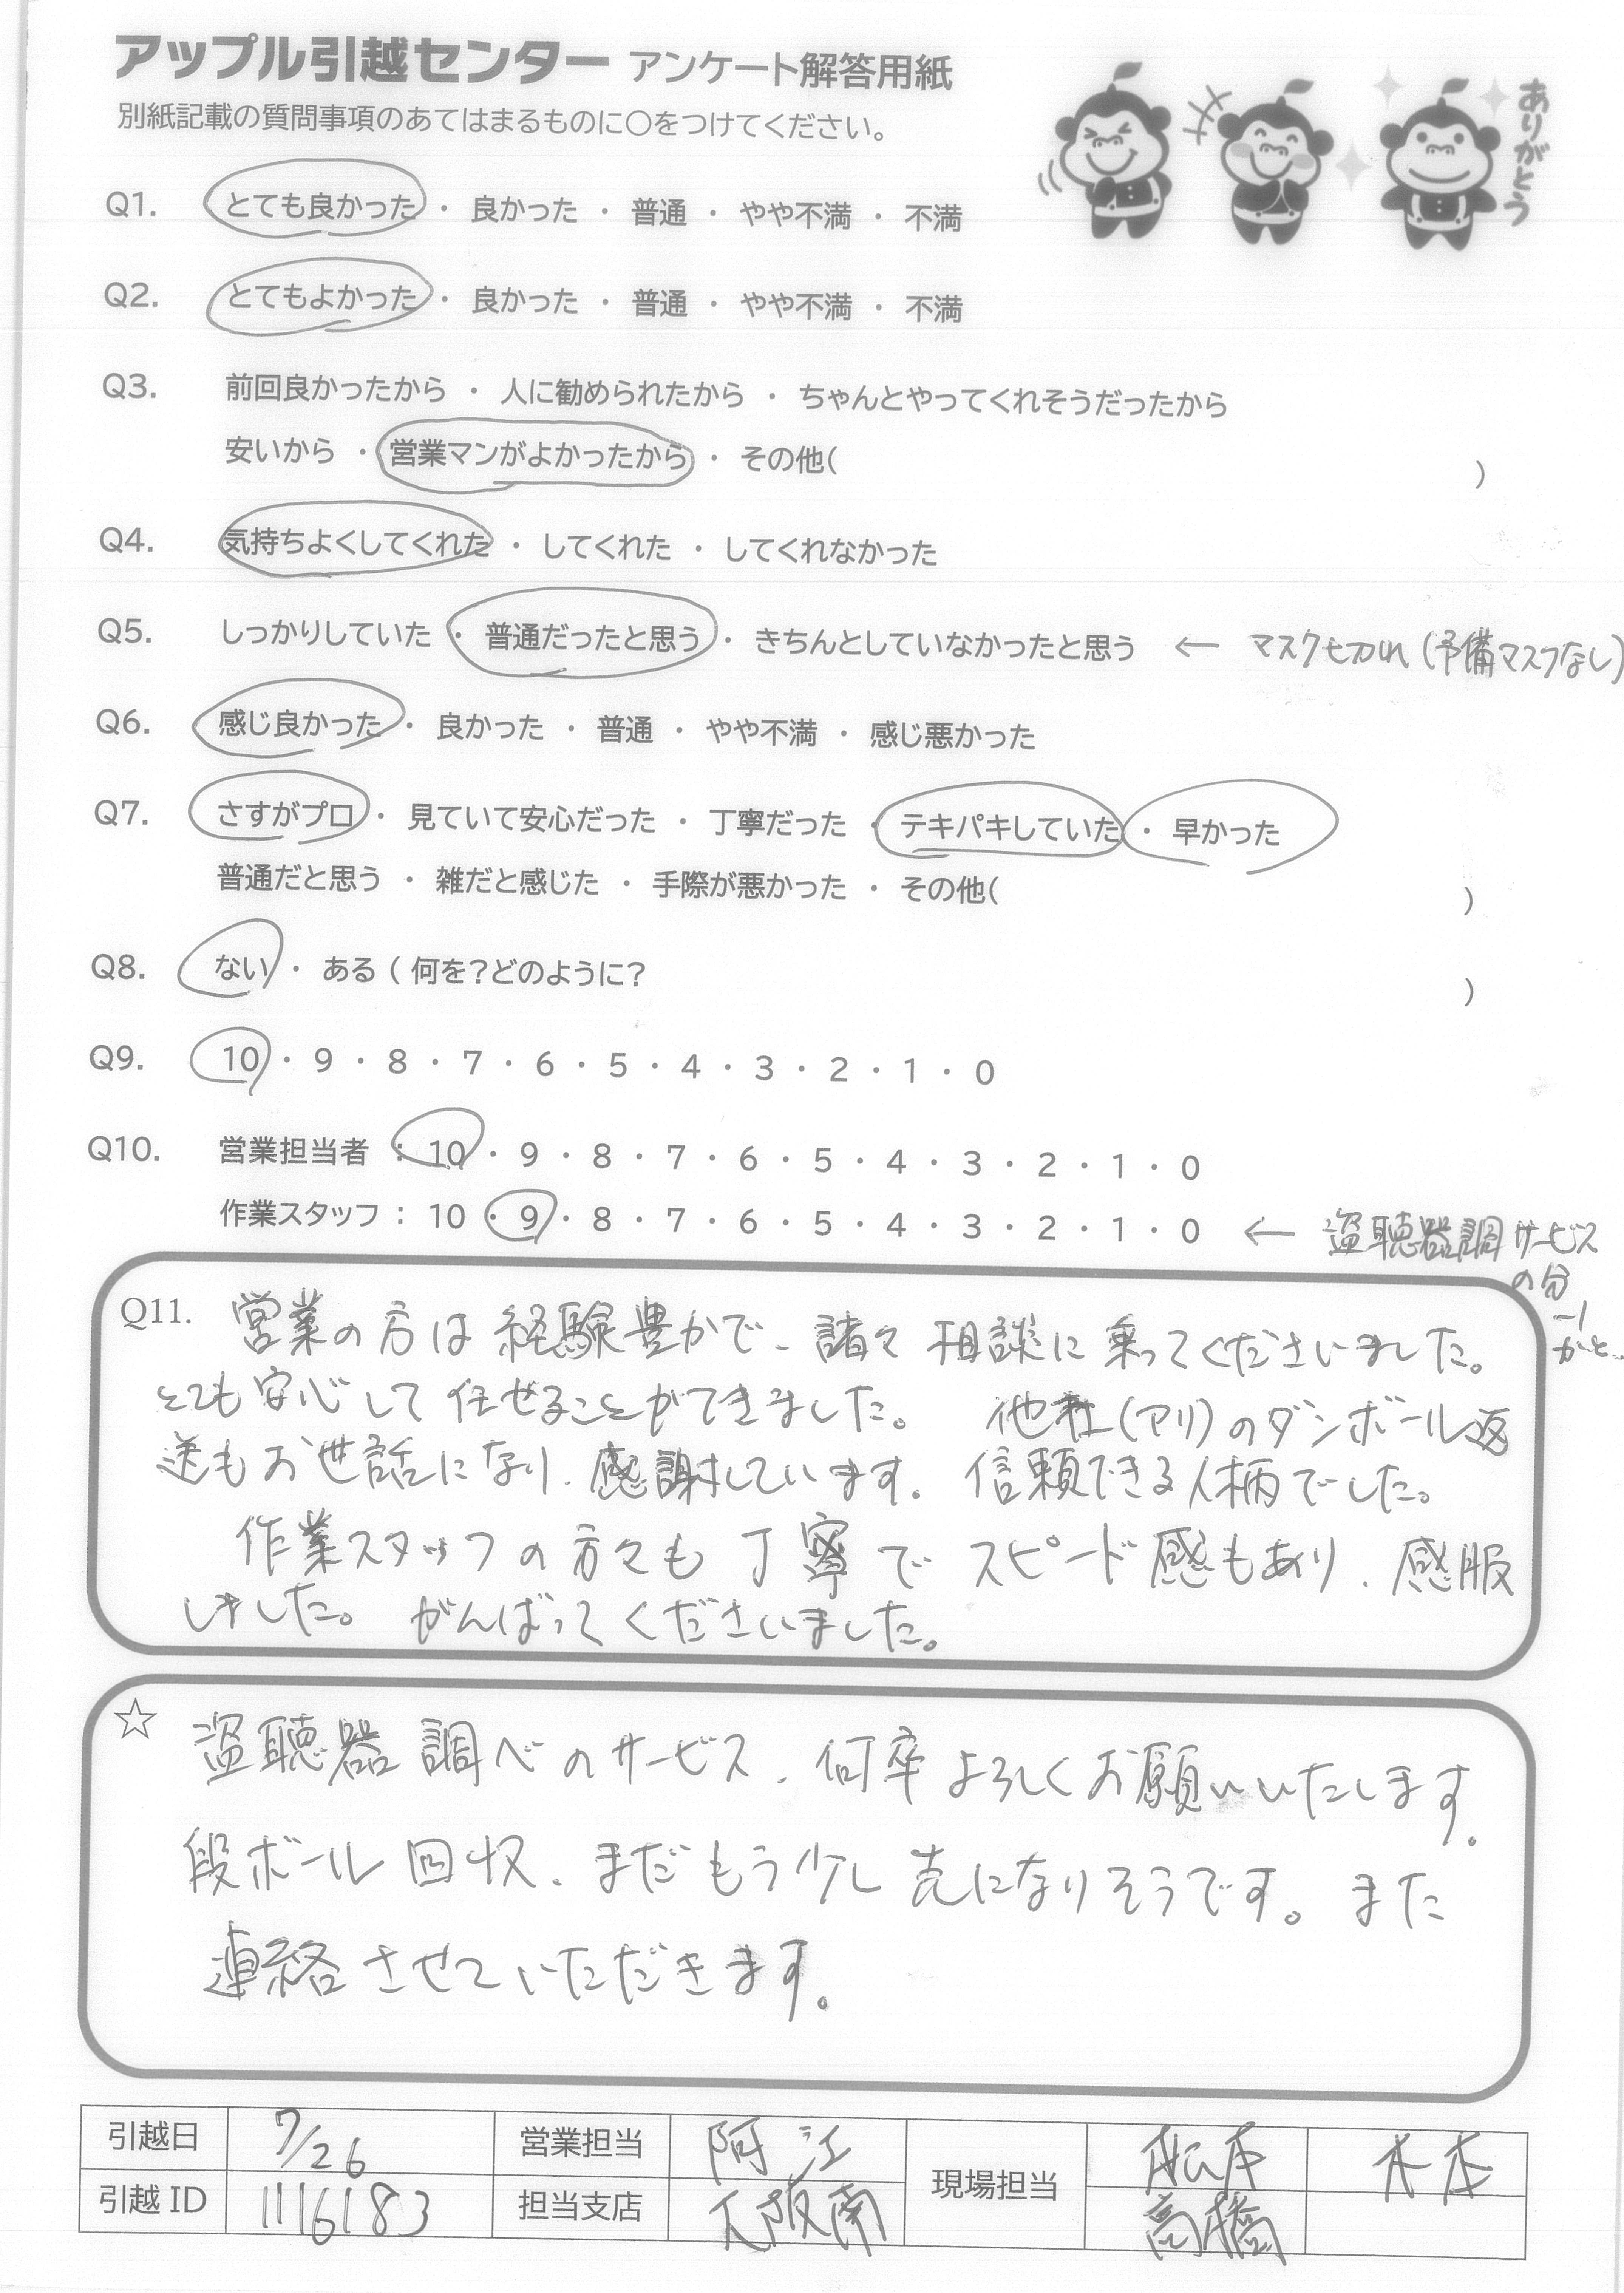 アップル引越センター アンケート解答用紙
別紙記載の質問事項のあてはまるものに○をつけてください。
ありがとう
Q1. とても良かった ・ 良かった ・ 普通 ・ やや不満 ・ 不満
Q2. とてもよかった ・ 良かった ・ 普通 ・ やや不満 ・ 不満
Q3. 前回良かったから ・ 人に勧められたから ・ ちゃんとやってくれそうだったから
安いから ・ 営業マンがよかったから ・ その他( )
Q4. 気持ちよくしてくれた ・ してくれた ・ してくれなかった
Q5. しっかりしていた ・ 普通だったと思う ・ きちんとしていなかったと思う ← マスク切れ(予備マスクなし)
Q6. 感じ良かった ・ 良かった ・ 普通 ・ やや不満 ・ 感じ悪かった
Q7. さすがプロ ・ 見ていて安心だった ・ 丁寧だった ・ テキパキしていた ・ 早かった
普通だと思う ・ 雑だと感じた ・ 手際が悪かった ・ その他( )
Q8. ない ・ ある ( 何を?どのように? )
Q9. 10 ・ 9 ・ 8 ・ 7 ・ 6 ・ 5 ・ 4 ・ 3 ・ 2 ・ 1 ・ 0
Q10. 営業担当者 : 10 ・ 9 ・ 8 ・ 7 ・ 6 ・ 5 ・ 4 ・ 3 ・ 2 ・ 1 ・ 0
作業スタッフ : 10 ・ 9 ・ 8 ・ 7 ・ 6 ・ 5 ・ 4 ・ 3 ・ 2 ・ 1 ・ 0 ← 盗聴器調サービス
の分
-1
かと..
Q11. 営業の方は経験豊かで、諸々相談に乗ってくださいました。
とても安心して任せることができました。 他社(アリ)のダンボール返
送もお世話になり、感謝しています。信頼できる人柄でした。
作業スタッフの方々も丁寧でスピード感もあり、感服
しました。がんばってくださいました。
☆ 盗聴器調べのサービス、何卒よろしくお願いいたします。
段ボール回収、まだもう少し先になりそうです。また
連絡させていただきます。
引越日 7/26 営業担当 阿江 現場担当 松本 木本
引越 ID 1116183 担当支店 大阪南 高橋